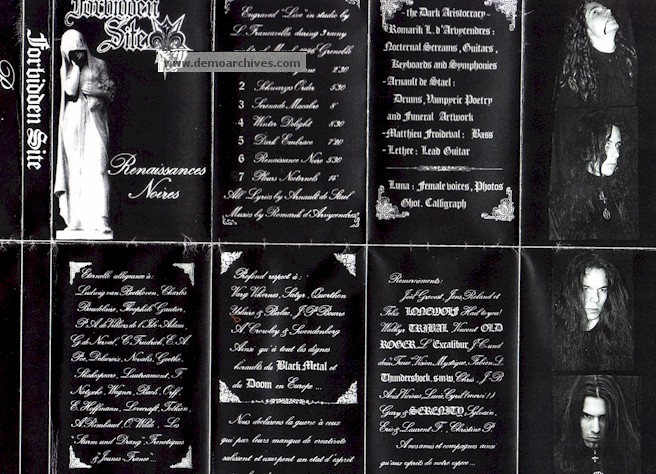 Forbidden Site
Forbidden
Site
www.demoarchives.com
Renaissances
Noires
Engraved "Live" in studio by
L. Francavilla during
Grenoble
2'30
2 Schwarzes Orden 5'30
3 Serenade Macabre 8'
4 Winter Delight 8'30
5 Dark Embrace 7'30
6 Renaissance Noire 5'30
7 Pleurs Nocturnes 15'
All Lyrics by Arnault de Stael
Musics by Romarik d'Arvycendres
- the Dark Aristocracy -
- Romarik L. d'Arvycendres :
Nocternal Streams, Guitars,
Keyboards and Symphonies
- Arnault de Stael :
Drums, Vampyric Poetry
and Funeral Artwork
- Matthieu Froideval : Bass
- Lethee : Lead Guitar
Luna : Female voices, Photos
Ghot. Calligraph
Eternelle allégeance à :
Ludwig van Beethoven, Charles
Baudelaire, Théophile Gautier,
P.A. de Villiers de l'Isle Adam,
G. de Nerval, C. Friedrich, E.A.
Poe, Delacroix, Novalis, Goethe,
Shakespeare, Lautréamont, F.
Nietzsche, Wagner, Bach, Orff,
E. Hoffmann, Lovecraft, Tolkien,
A. Rimbaud, O. Wilde, Les
"Sturm und Drang" Frénétiques
& Jeunes-France"...
Profond respect à :
Varg Vikernes, Satyr, Quorthon
J-P Bourre
A. Crowley & Swendenborg
Ainsi qu'à tout les dignes
hérauts de Black Metal et
de Doom en Europe ...
Nous déclarons la guerre à ceux
qui par leurs manque de créativité
salissent et usurpent un état d'esprit
Remerciements :
Joël Grevast, Jens Roland et
Felix LONEWOLF
TRIBAL Vincent OLD
ROGER L'Excalibur, J-C und
Vision Mystique, Fabien L.
Thundershock, smw, Chris, J-B
Gary & SERENITY, Sylvain,
Eric & Laurent F., Christine P.
A nos amis et compagnes ainsi